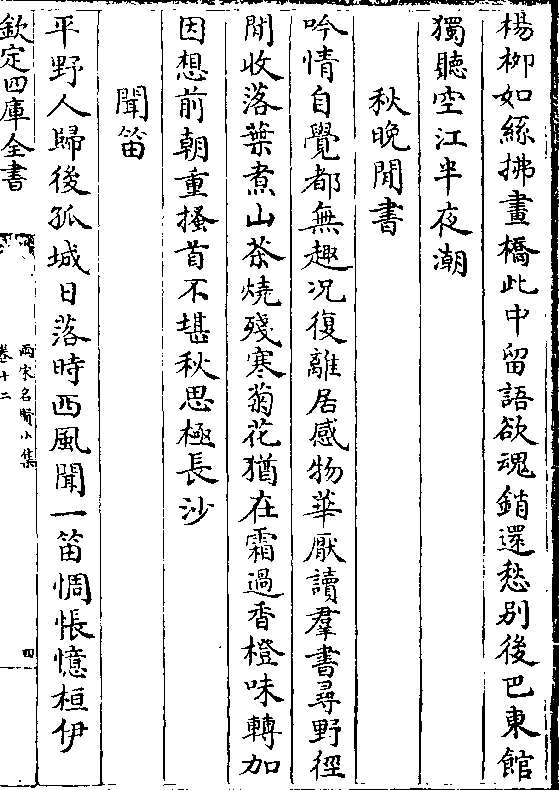 楊栁如絲拂畫橋此中留語欲魂銷還愁别後巴東館
獨聽空江半夜潮
秋晚閒書
吟情自覺都無趣况復離居感物華厭讀羣書尋野徑
閒收落葉煮山茶燒殘寒菊花猶在霜過香橙味轉加
因想前朝重搔首不堪秋思極長沙
聞笛
平野人歸後孤城日落時西風聞一笛惆悵憶桓伊
欽定四庫全書
兩宋名賢小集
卷十二
四